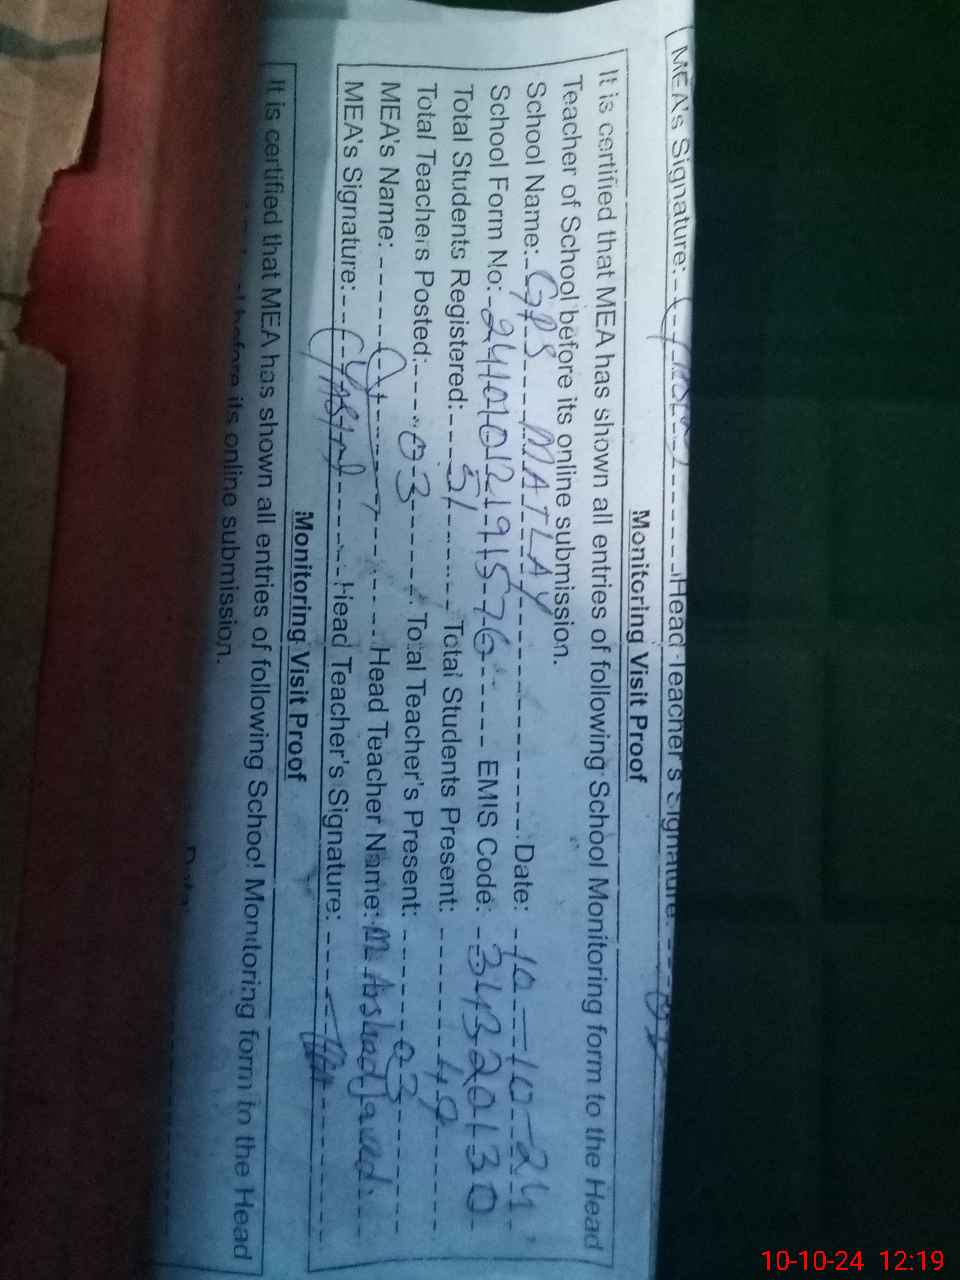 MEA's Signature: Head Teacher's Signature:
Monitoring Visit Proof
It is certified that MEA has shown all entries of following School Monitoring form to the Head
Teacher of School before its online submission.
School Name: GPS MATLAY Date: 10-10-24
School Form No: EMIS Code: 34320130
Total Students Registered: 51 Total Students Present: 49
Total Teachers Posted: 03 Total Teacher's Present: 03
MEA's Name: Head Teacher Name: M Arshad Javed
MEA's Signature: Head Teacher's Signature:
Monitoring Visit Proof
It is certified that MEA has shown all entries of following School Monitoring form to the Head
before its online submission.
Date:
10-10-24 12:19